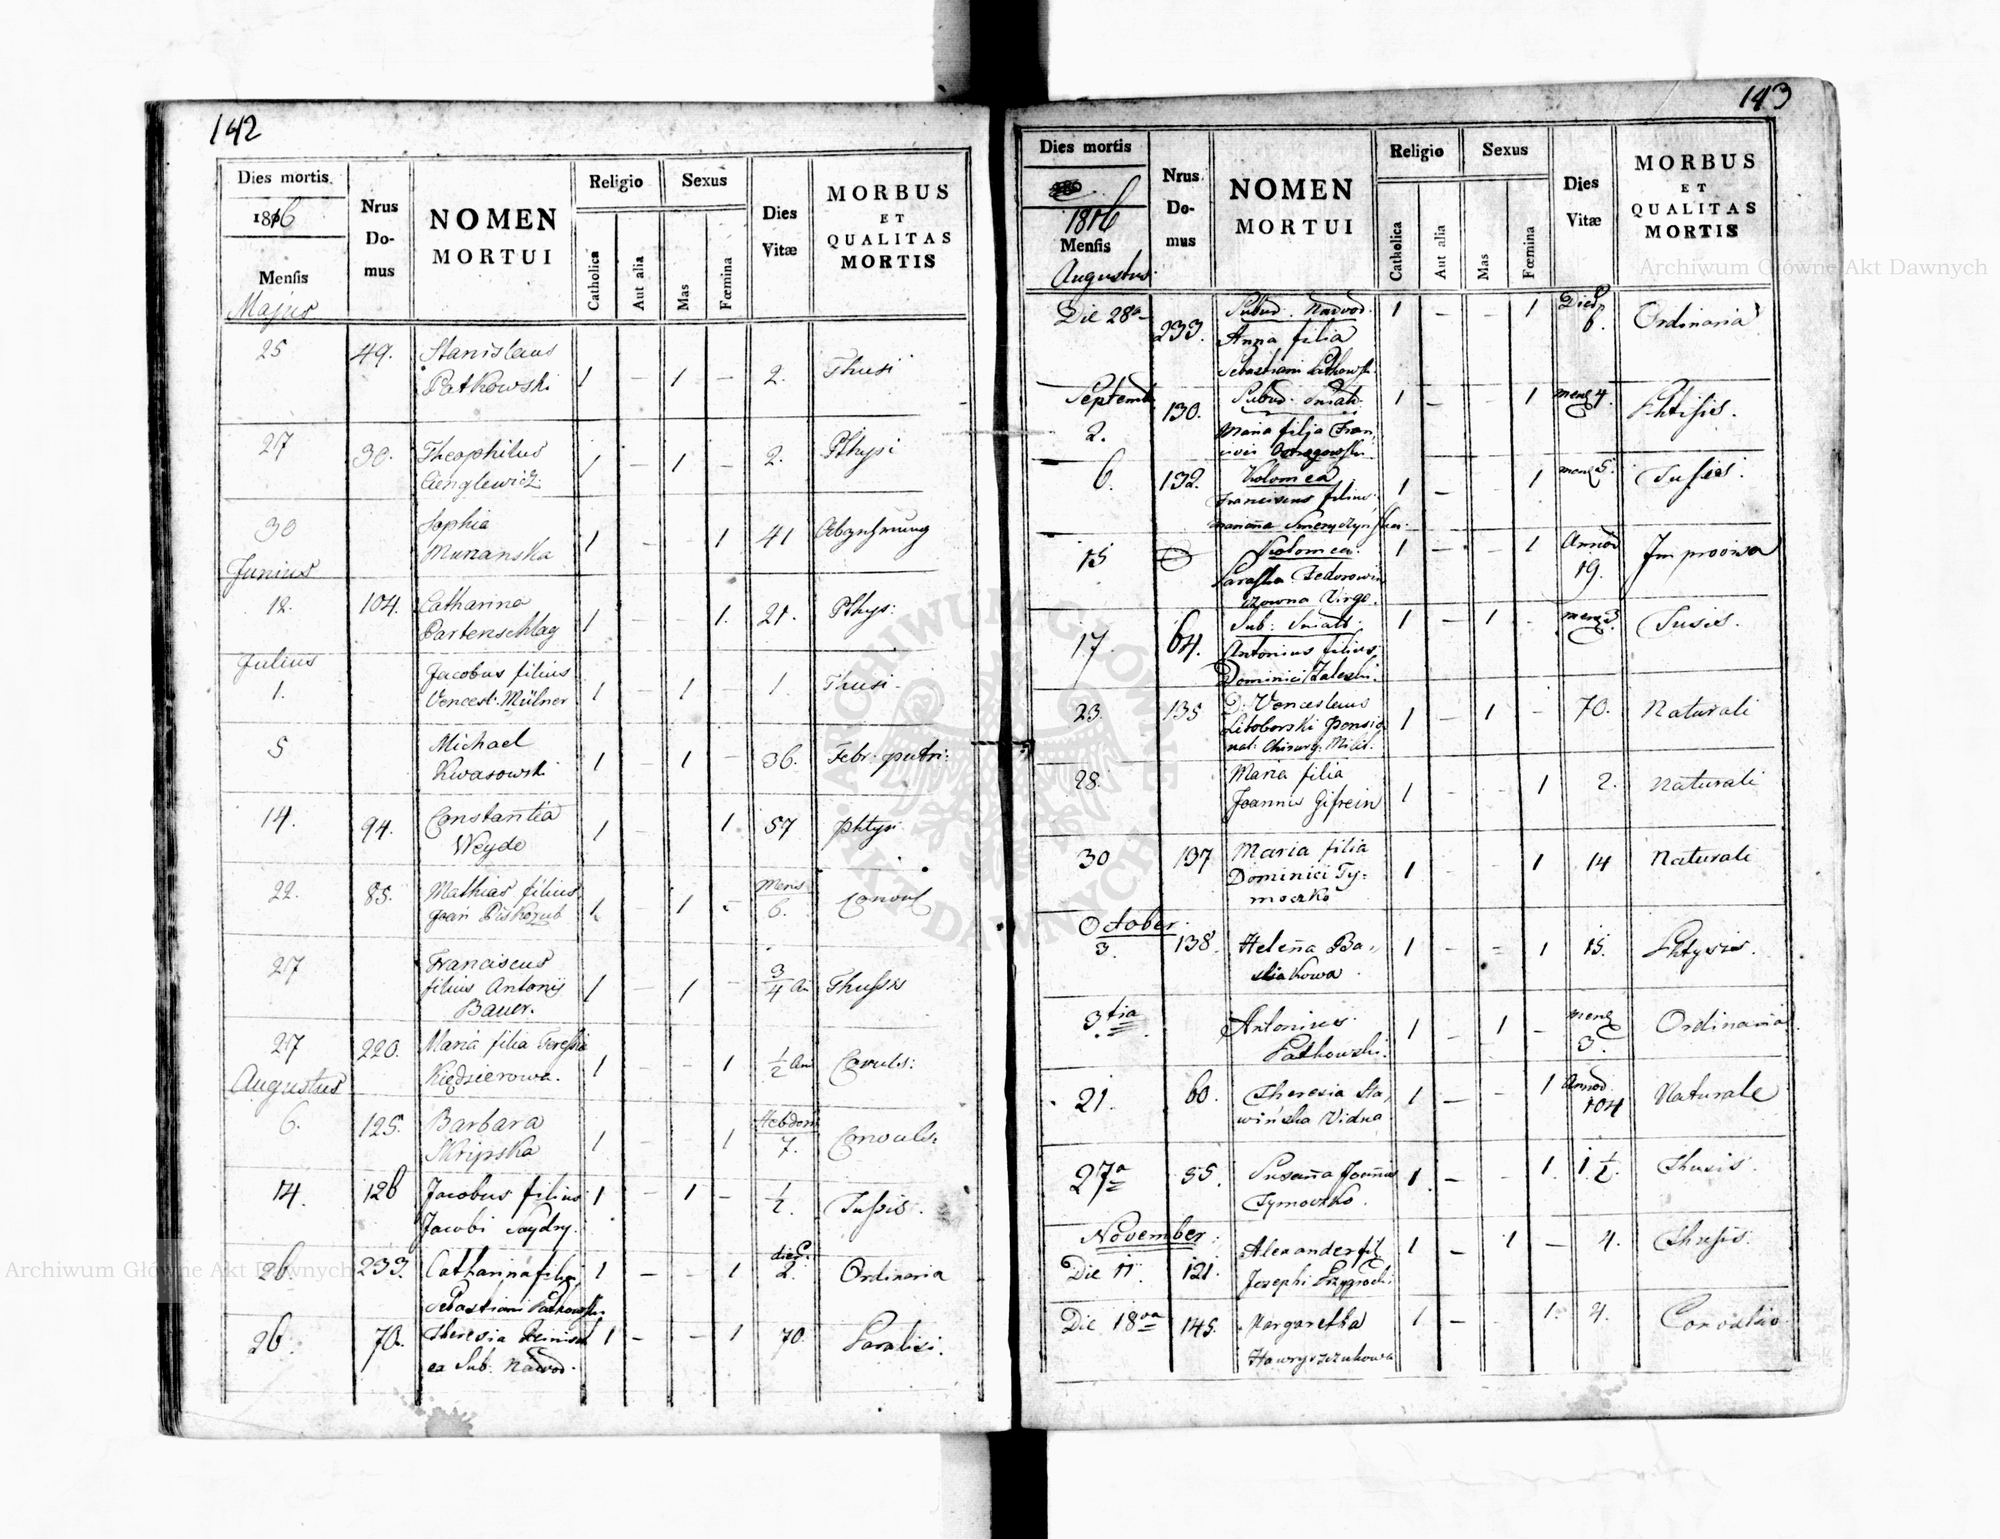 142
Dies mortis
1816
Mensis
Majus
Nrus
Do-
mus
NOMEN
MORTUI
Religio
Catholica
Aut alia
Sexus
Mas
Fœmina
Dies
Vitæ
MORBUS
ET
QUALITAS
MORTIS
25 49. Stanislaus
Patkowski 1 – 1 – 2. Thusi
27 30. Theophilus
Cienglewicz 1 – 1 – 2. Pthysi
30 Sophia
Muranska 1 – – 1 41 Abzehrung
Junius
12. 104. Catharina
Partenschlag 1 – – 1. 21. Pthys:
Julius
1. Jacobus filius
Vencesl: Mülner 1 – 1 – 1. Thusi
5 Michael
Kwasowski 1 – 1 – 36. Febr: putri:
14. 94. Constantia
Weyde 1 – – 1 57 phtysi
22. 85. Mathias filius
Joan Piskozub 1 – 1 – Mens 6. Convul
27 Franciscus
filius Antonij
Bauer. 1 – 1 – 3/4 An Thussis
27 220. Maria filia Teressia
Kiędzierowa. 1 – – 1 1/2 An Convuls:
Augustus
6. 125. Barbara
Skripska 1 – – 1 Hebdom 7. Convuls:
14. 126 Jacobus filius
Jacobi Saydry. 1 – 1 – 1/2. Tussis.
26. 233. Catharina filia
Sebastiani Patkowski 1 – – 1 dies 2. Ordinaria
26. 70. Theresia
ex Sub. Nadwor. 1 – – 1 70. Paralisi.
143
Dies mortis
1816
Mensis
Augustus
Nrus
Do-
mus
NOMEN
MORTUI
Religio
Catholica
Aut alia
Sexus
Mas
Fœmina
Dies
Vitæ
MORBUS
ET
QUALITAS
MORTIS
Die 28a 233. Subud. Nadwod.
Anna filia
Sebastiani Patkowski. 1 – – 1 Dies 6. Ordinaria
Septemb
2. 130. Subud. Sniati.
Maria filia Fran,
cisci 1 – – 1 mens 4. Phtisis.
6. 132. Kolomea
Franciscus filius
1 – – 1 mens 5. Tussis.
15 Kolomea.
Paraska Fedorowi
czowna Virgo. 1 – – 1 Annor 19. Improvisa
17 64. Sub: Sniati.
Antonius filius
Dominici Zaleski. 1 – 1 – mens 3. Tusis.
23. 135 D. Venceslaus
Litoborski pensio
nat: Chirurg. Milit. 1 – 1 – 70. Naturali
28. Maria filia
Joannis Gifrein 1 – – 1 2. Naturali
30 137 Maria filia
Dominici Ty-
moczko 1 – – 1 14 Naturali
October
3. 138. Helena Ba,
1 – – 1 15. Phtysis.
3tia Antonius
Patkowski. 1 – 1 – mens 3. Ordinaria
21. 60. Theresia Sła,
wińska Vidua 1 – – 1 Annor. 104 Naturale
27a 55. Susanna Joannis
Tymoczko. 1 – – 1. 1 1/2. Thusis.
November
Die 11. 121. Alexander fil
Josephi 1 – 1 – 4. Thussis.
Die 18va 145. Margaretha
Hawryszczukowa 1 – – 1. 4. Convulsio
ARCHIWUM GŁÓWNE AKT DAWNYCH
Archiwum Główne Akt Dawnych
Archiwum Główne Akt Dawnych